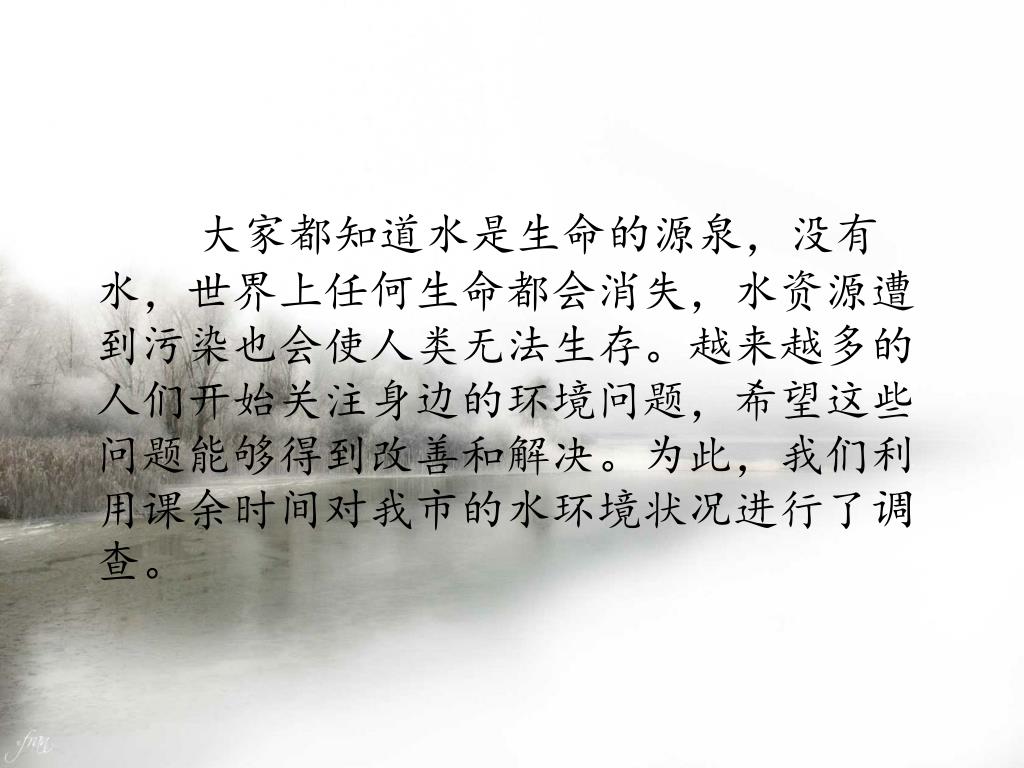 大家都知道水是生命的源泉，没有
水，世界上任何生命都会消失，水资源遭
到污染也会使人类无法生存。越来越多的
人们开始关注身边的环境问题，希望这些
问题能够得到改善和解决。为此，我们利
用课余时间对我市的水环境状况进行了调
查。
fran